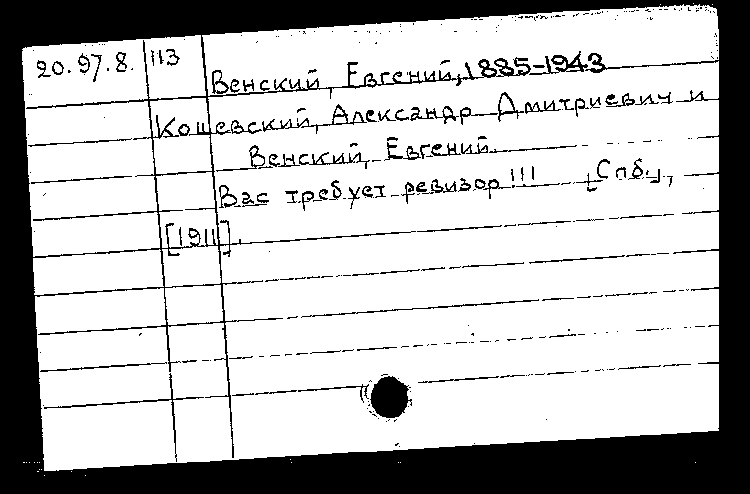 20.97.8. 113
Венский, Евгений, 1885-1943
Кошевский, Александр Дмитриевич и
Венский, Евгений.
Вас требует ревизор!!! [Спб.],
[1911].